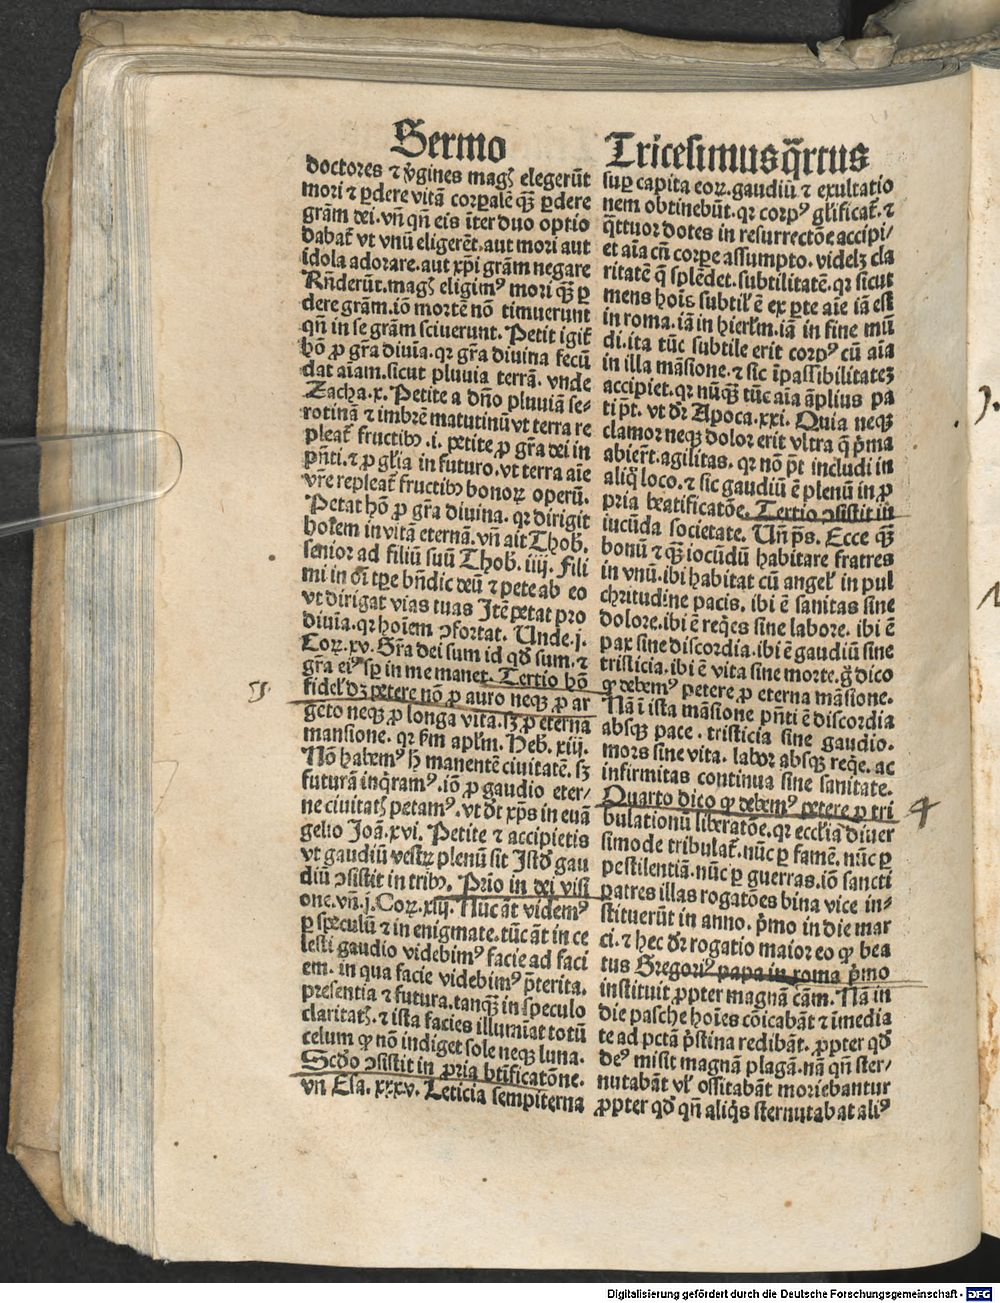 Sermo
doctores ⁊ v̾gines magꝭ elegerūt
mori ⁊ ꝑdere vitā corꝑalē qꝫ̄ ꝑdere
grām dei. vn̄ qn̄ eis īter duo optio
dabat̄ vt vnū eligerēt. aut mori aut
idola adorare. aut xp̄i grām negare
Rn̄derūt. magꝭ eligimꝰ mori qꝫ̄ ꝑ
dere grām. iō mortē nō timuerunt
qn̄ in se grām sciuerunt. Petit igit̄
hō ꝓ gr̄a diuīa. qr gr̄a diuina fecū
dat aīam. sicut pluuia terrā. vnde
Zacha. x. Petite a dn̄o pluuiā se-
rotinā ⁊ imbrē matutinū vt terra re
pleat̄ fructibꝰ. i. petite ꝓ gr̄a dei in
pn̄ti. ⁊ ꝓ gl̄ia in futuro. vt terra aīe
vr̄e repleat̄ fructibꝰ bonoꝝ operū.
Petat hō ꝓ gr̄a diuina. qr dirigit
hoīem in vitā eternā. vn̄ ait Thob.
senior ad filiū suū Thob. iiij. Fili
mi in oī tꝑe bn̄dic deū ⁊ pete ab eo
vt dirigat vias tuas Itē petat pro
diuīa. qr hoīem ↄfortat. Unde. j.
Coꝝ. xv. Gr̄a dei sum id qd̄ sum. ⁊
gr̄a eiꝰ sꝑ in me manet. Tertio hō
fidel̄ dꝫ petere nō ꝓ auro neqꝫ ꝓ ar
gēto neqꝫ ꝓ longa vita. sꝫ ꝓ eterna
mansione. qr km̄ apl̄m. Heb. xiij.
Nō habemꝰ h̄ manentē ciuitatē. sꝫ
futurā inq̄ramꝰ. iō ꝓ gaudio eter/
ne ciuitatꝭ petamꝰ. vt dt̄ xp̄s in euā
gelio Joā. xvi. Petite ⁊ accipietis
vt gaudiū vestꝝ plenū sit Istd̄ gau
diū ↄsistit in tribꝰ. Prīo in dei visi
one. vn̄. j. Coꝝ. xiij. Nūc āt videmꝰ
ꝑ speculū ⁊ in enigmate. tūc āt in ce
lesti gaudio videbimꝰ facie ad faci
em. in qua facie videbimꝰ p̄terita.
presentia ⁊ futura. tanqꝫ̄ in speculo
claritatꝭ. ⁊ ista facies illumīat totū
celum ꝙ nō indiget sole neqꝫ luna.
Scd̄o ↄsistit in ꝓpria btīficatōne.
vn̄ Esa. xxxv. Leticia sempiterna
Tricesimusq̄rtus
suꝑ capita eoꝝ. gaudiū ⁊ exultatio
nem obtinebūt. qr corpꝰ gl̄ificat̄. ⁊
q̄ttuor dotes in resurrectōe accipi/
et aīa cū corꝑe assumpto. videlꝫ cla
ritatē q̄ splēdet. subtilitatē. qr sicut
mens hoīs subtil̄ ē ex ꝑte aīe iā est
in roma. iā in hierl̄m. iā in fine mū
di. ita tūc subtile erit corpꝰ cū aīa
in illa māsione. ⁊ sic īpassibilitatē
accipiet. qr nūqꝫ̄ tūc aīa āplius pa
ti pt̄. vt dr̄ Apoca. xxi. Quia neqꝫ
clamor neqꝫ dolor erit vltra q̄ p̄ma
abierūt. agilitas. qr nō pt̄ includi in
aliq̄ loco. ⁊ sic gaudiū ē plenū in ꝓ
pria beatificatōe. Tertio ↄsistit in
iucūda societate. Un̄ ps̄. Ecce qꝫ̄
bonū ⁊ qꝫ̄ iocūdū habitare fratres
in vnū. ibi habitat cū angel̄ in pul
chritudine pacis. ibi ē sanitas sine
dolore. ibi ē req̄es sine labore. ibi ē
pax sine discordia. ibi ē gaudiū sine
tristicia. ibi ē vita sine morte. g̊ dico
ꝙ debemꝰ petere ꝓ eterna māsione.
Nā ī ista māsione pn̄ti ē discordia
absqꝫ pace. tristicia sine gaudio.
mors sine vita. labor absqꝫ req̄e. ac
infirmitas continua sine sanitate.
Quarto dico ꝙ debemꝰ petere ꝓ tri
bulationū liberatōe. qr eccl̄ia diuer
simode tribulat̄. nūc ꝑ famē. nūc ꝑ
pestilentiā. nūc ꝑ guerras. iō sancti
patres illas rogatōes bina vice in-
stituerūt in anno. p̄mo in die mar
ci. ⁊ hec dr̄ rogatio maior eo ꝙ bea
tus Gregoriꝰ papa in roma p̄mo
instituit ꝓpter magnā cām. Nā in
die pasche hoīes cōicabāt ⁊ īmedia
te ad pctā p̄stina redibāt. ꝓpter qd̄
deꝰ misit magnā plagā. nā qn̄ ster/
nutabāt vl̄ ossitabāt moriebantur
ꝓpter qd̄ qn̄ aliq̄s sternutabat aliꝰ
4
Digitalisierung gefördert durch die Deutsche Forschungsgemeinschaft - DFG